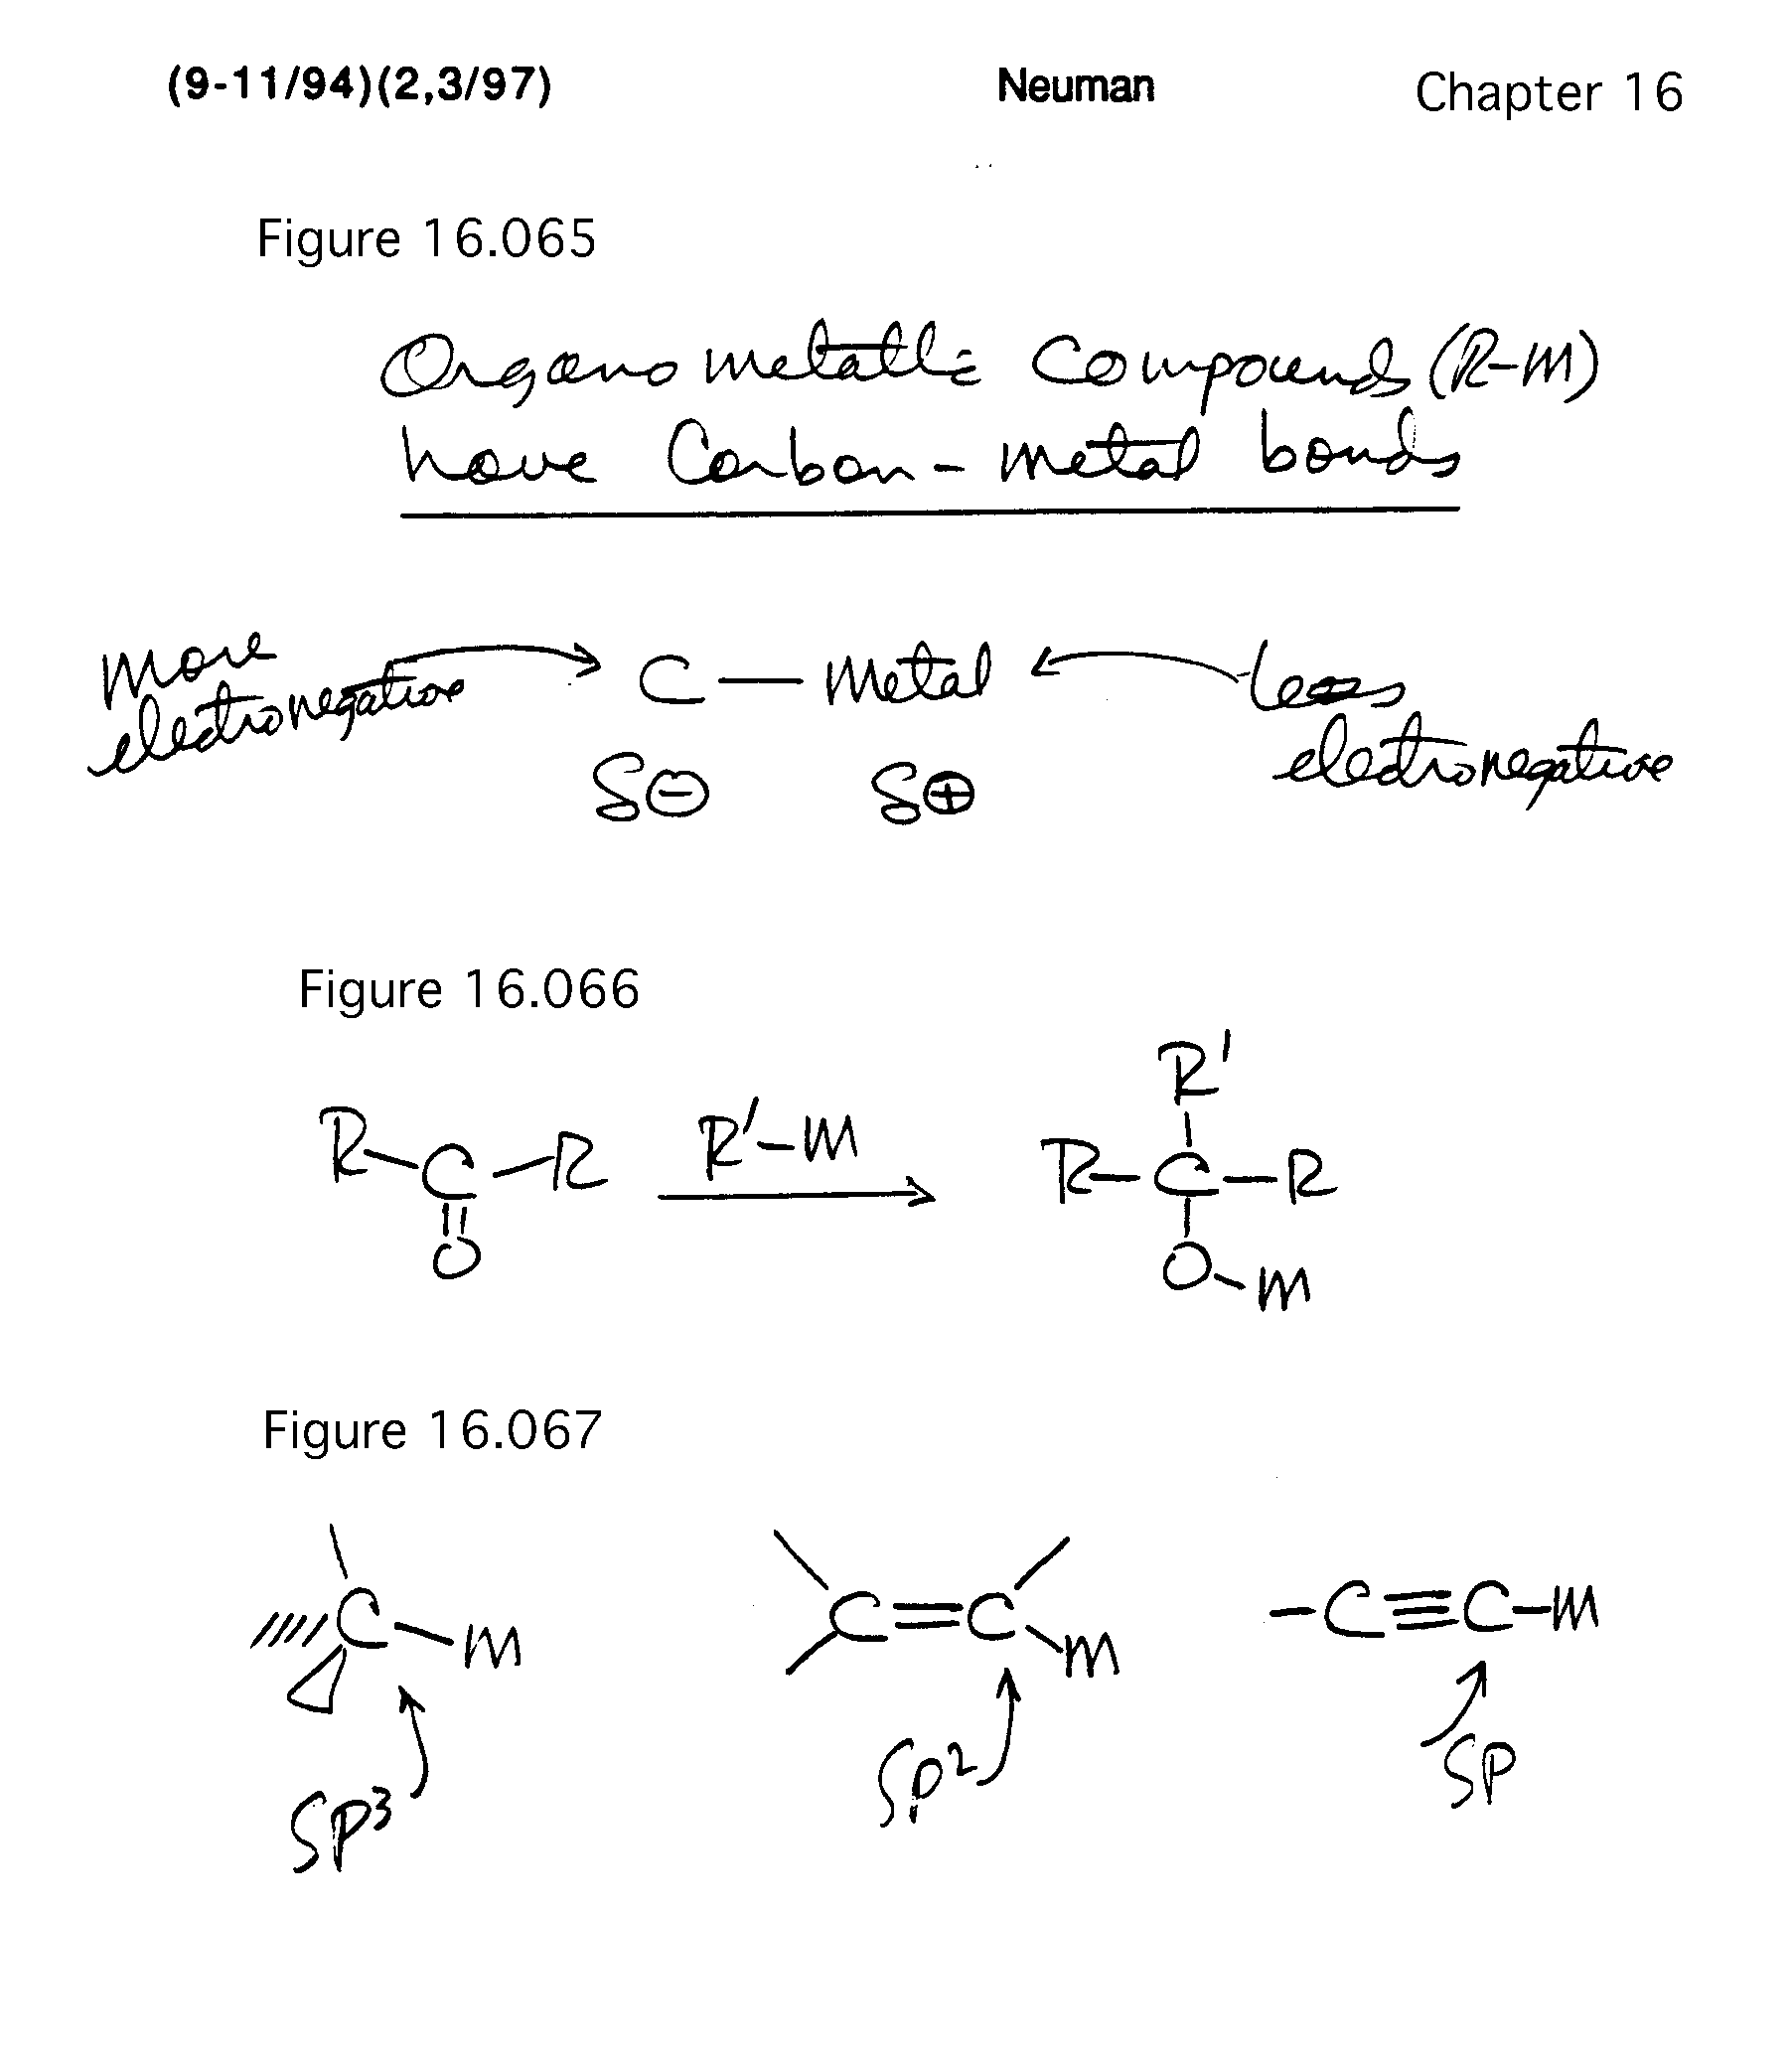 (9-11/94)(2,3/97) Neuman Chapter 16
Figure 16.065
Organometallic Compounds (R-M)
have Carbon-metal bonds
more electronegative C — Metal less electronegative
δ⊖ δ⊕
Figure 16.066
R'
R-C-R R'-M R-C-R
O O-M
Figure 16.067
C-M C=C-M -C≡C-M
SP³ SP² SP